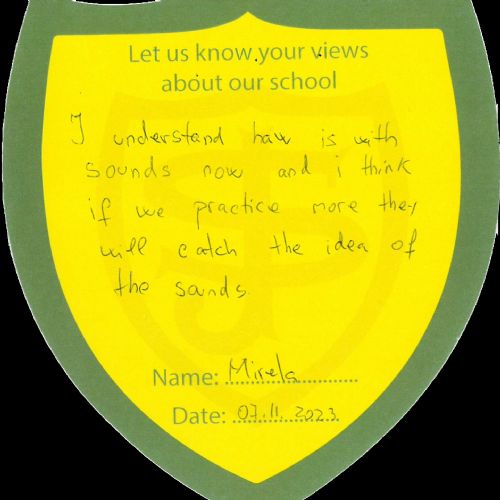 Let us know your views
about our school
I understand haw is with
sounds now and i think
if we practice more they
will catch the idea of
the sounds.
Name: Mirela
Date: 07.11.2023